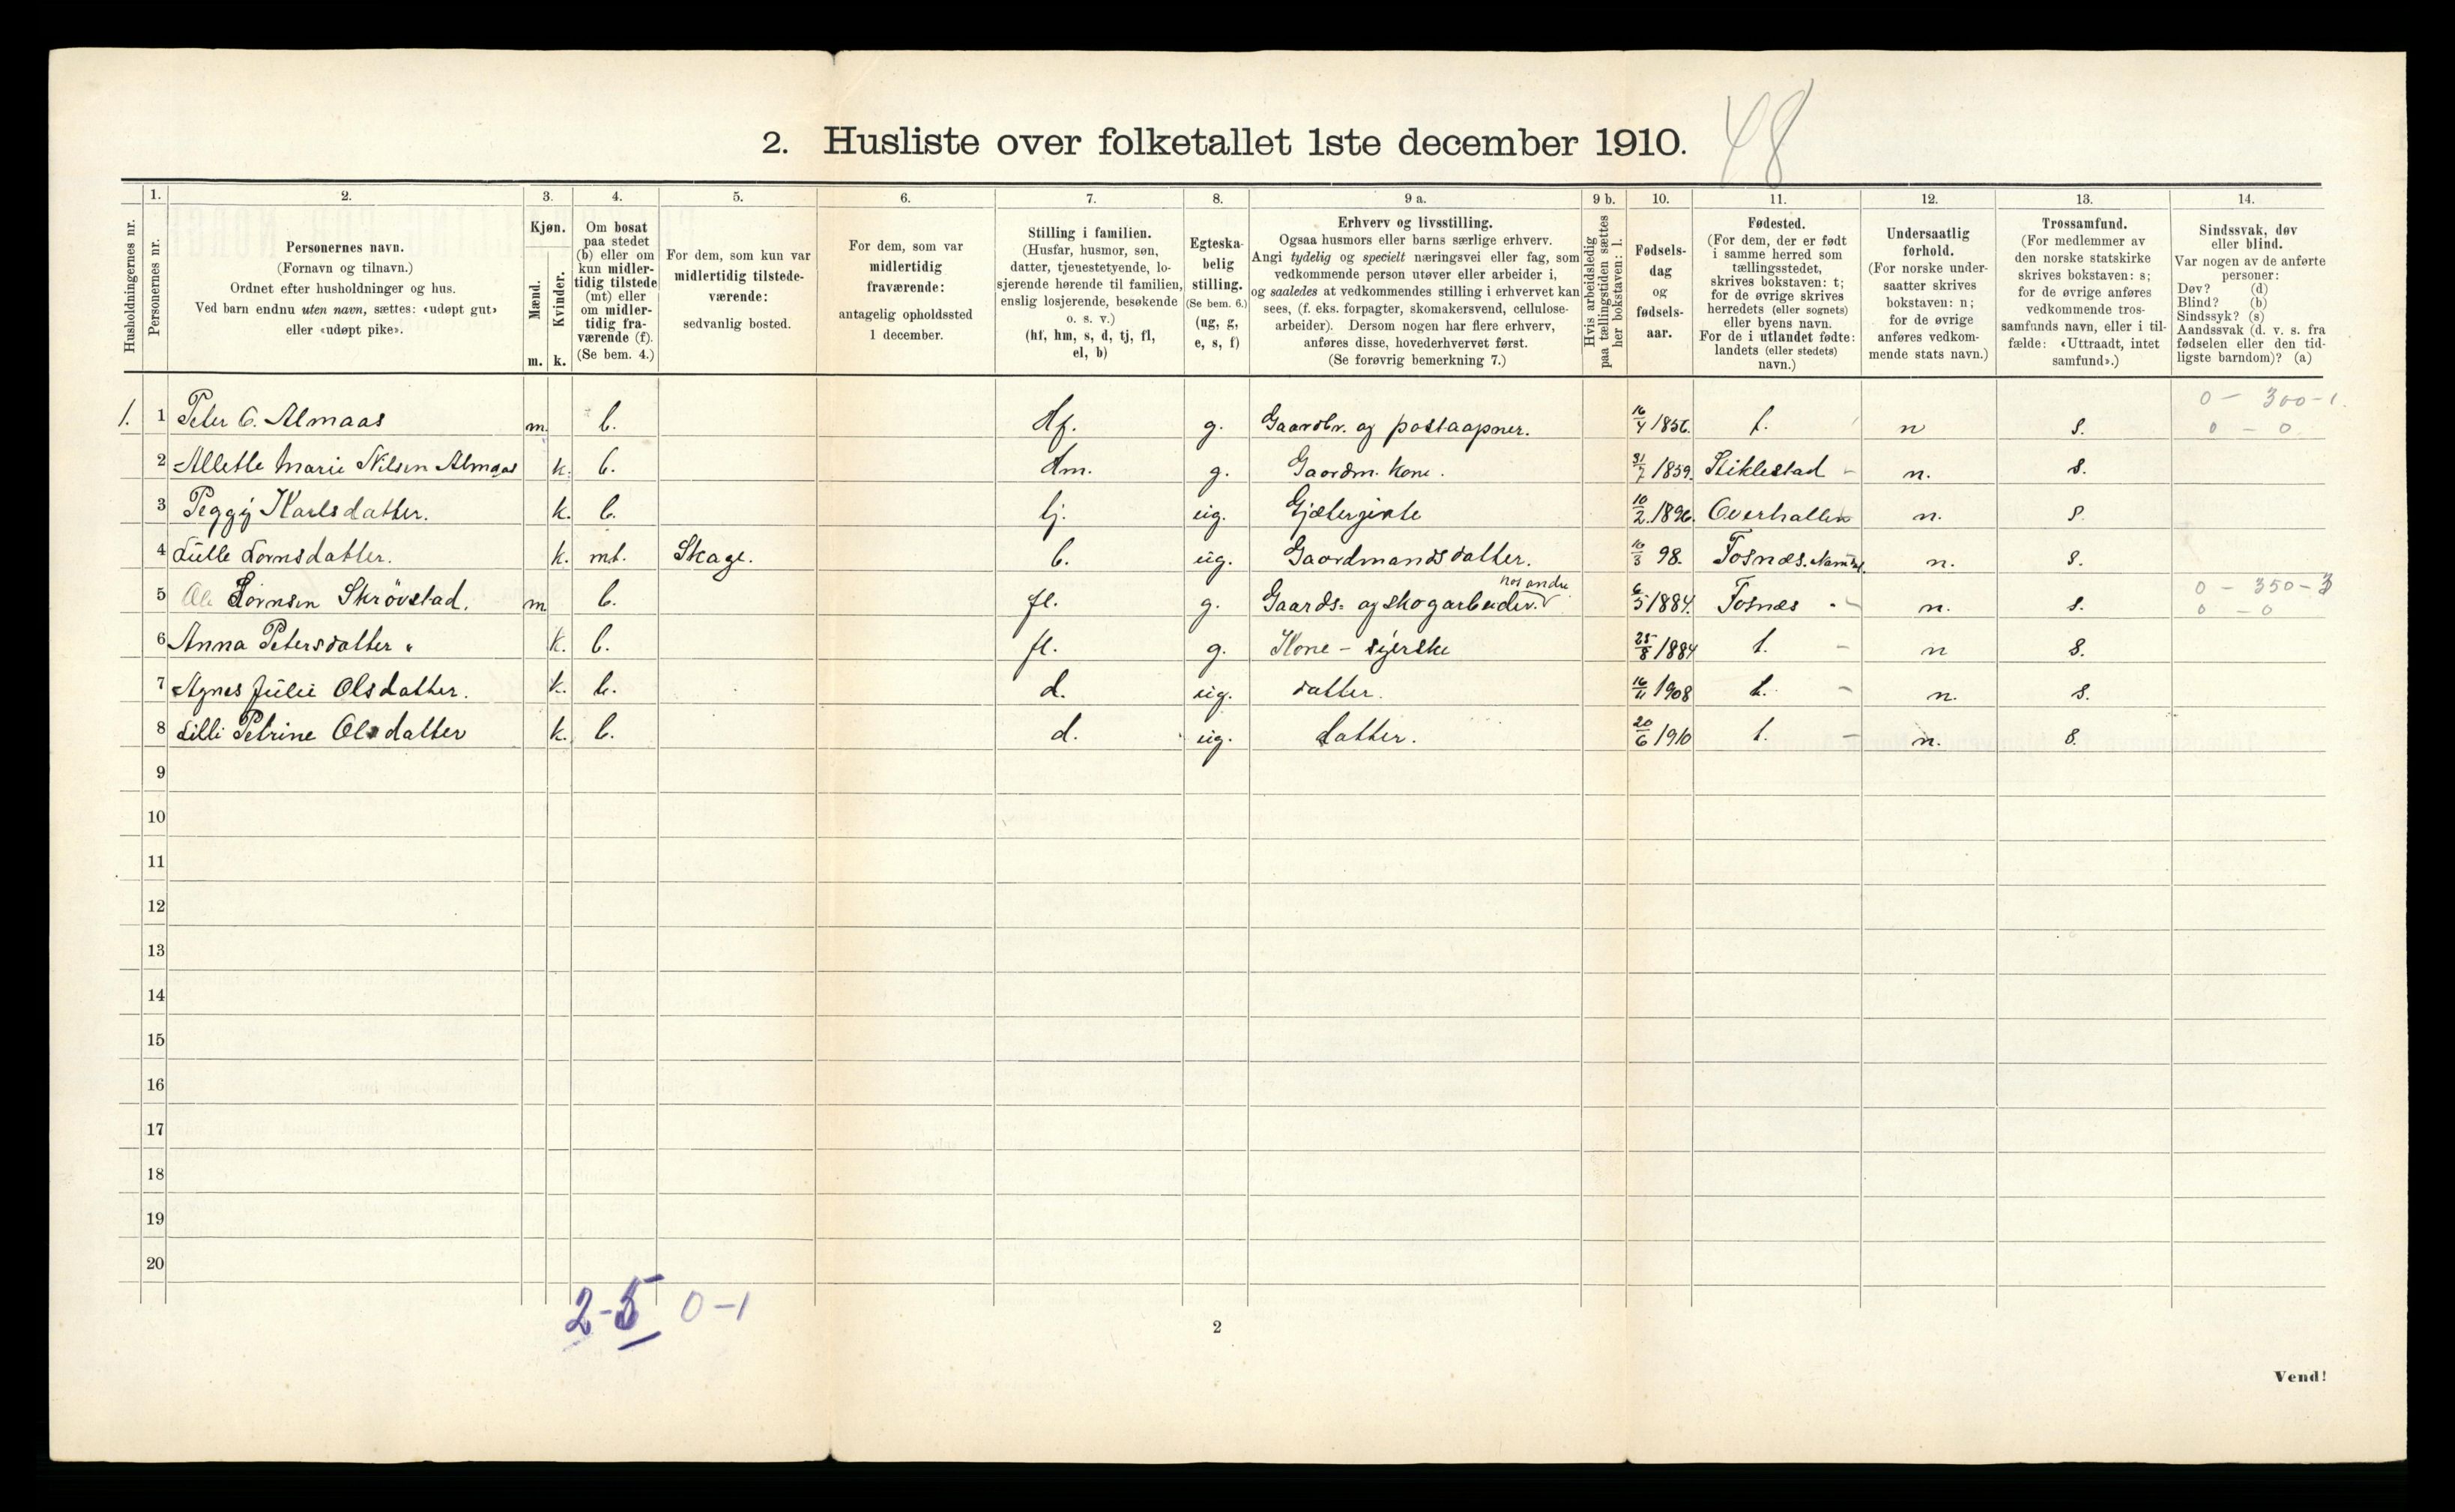 2. Husliste over folketallet 1ste december 1910. 48
1. 2. 3. 4. 5. 6. 7. 8. 9 a. 9 b. 10. 11. 12. 13. 14.
Husholdningernes nr.
Personernes nr.
Personernes navn.
(Fornavn og tilnavn.)
Ordnet efter husholdninger og hus.
Ved barn endnu uten navn, sættes: «udøpt gut»
eller «udøpt pike».
Kjøn.
Mænd.
Kvinder.
m. k.
Om bosat
paa stedet
(b) eller om
kun midler-
tidig tilstede
(mt) eller
om midler-
tidig fra-
værende (f).
(Se bem. 4.)
For dem, som kun var
midlertidig tilstede-
værende:
sedvanlig bosted.
For dem, som var
midlertidig
fraværende:
antagelig opholdssted
1 december.
Stilling i familien.
(Husfar, husmor, søn,
datter, tjenestetyende, lo-
sjerende hørende til familien,
enslig losjerende, besøkende
o. s. v.)
(hf, hm, s, d, tj, fl,
el, b)
Egteska-
belig
stilling.
(Se bem. 6.)
(ug, g,
e, s, f)
Erhverv og livsstilling.
Ogsaa husmors eller barns særlige erhverv.
Angi tydelig og specielt næringsvei eller fag, som
vedkommende person utøver eller arbeider i,
og saaledes at vedkommendes stilling i erhvervet kan
sees, (f. eks. forpagter, skomakersvend, cellulose-
arbeider). Dersom nogen har flere erhverv,
anføres disse, hovederhvervet først.
(Se forøvrig bemerkning 7.)
Hvis arbeidsledig
paa tællingstiden sættes
her bokstaven: l.
Fødsels-
dag
og
fødsels-
aar.
Fødested.
(For dem, der er født
i samme herred som
tællingsstedet,
skrives bokstaven: t;
for de øvrige skrives
herredets (eller sognets)
eller byens navn.
For de i utlandet fødte:
landets (eller stedets)
navn.)
Undersaatlig
forhold.
(For norske under-
saatter skrives
bokstaven: n;
for de øvrige
anføres vedkom-
mende stats navn.)
Trossamfund.
(For medlemmer av
den norske statskirke
skrives bokstaven: s;
for de øvrige anføres
vedkommende tros-
samfunds navn, eller i til-
fælde: «Uttraadt, intet
samfund».)
Sindssvak, døv
eller blind.
Var nogen av de anførte
personer:
Døv? (d)
Blind? (b)
Sindssyk? (s)
Aandssvak (d. v. s. fra
fødselen eller den tid-
ligste barndom)? (a)
0 - 300 - 1.
1. 1 Peter C. Almaas m. b. Hf. g. Gaardbr. og postaapner. 16/4 1856. t. n s. 0 - 0
2 Allette Marie Nilsen Almaas k. b. Hm. g. Gaardm. kone. 31/7 1859. Stiklestad - n. s.
3 Peggy Karlsdatter. k. b. tj. ug. Gjæterjente 10/2. 1896. Overhallen n. s.
4 Lulle Lornsdatter. k. mt. Skage. b. ug. Gaardmandsdatter. 10/3 98. Fosnæs. n. s.
hos andre 0 - 350 - 3
5 Ole Lornsen Skrøvstad. m b. fl. g. Gaards- og skogarbeider. 6/5 1884. Fosnæs - n. s. 0 - 0
6 Anna Petersdatter " k. b. fl. g. Kone - syerske 25/8 1884 t. - n s.
7 Agnes Julie Olsdatter. k. b. d. ug. datter. 16/11 1908 t. - n. s.
8 Lilli Petrine Olsdatter k. b. d. ug. datter. 20/6 1910 t. - n. s.
9
10
11
12
13
14
15
16
17
18
19
20
2-5 0-1
2
Vend!